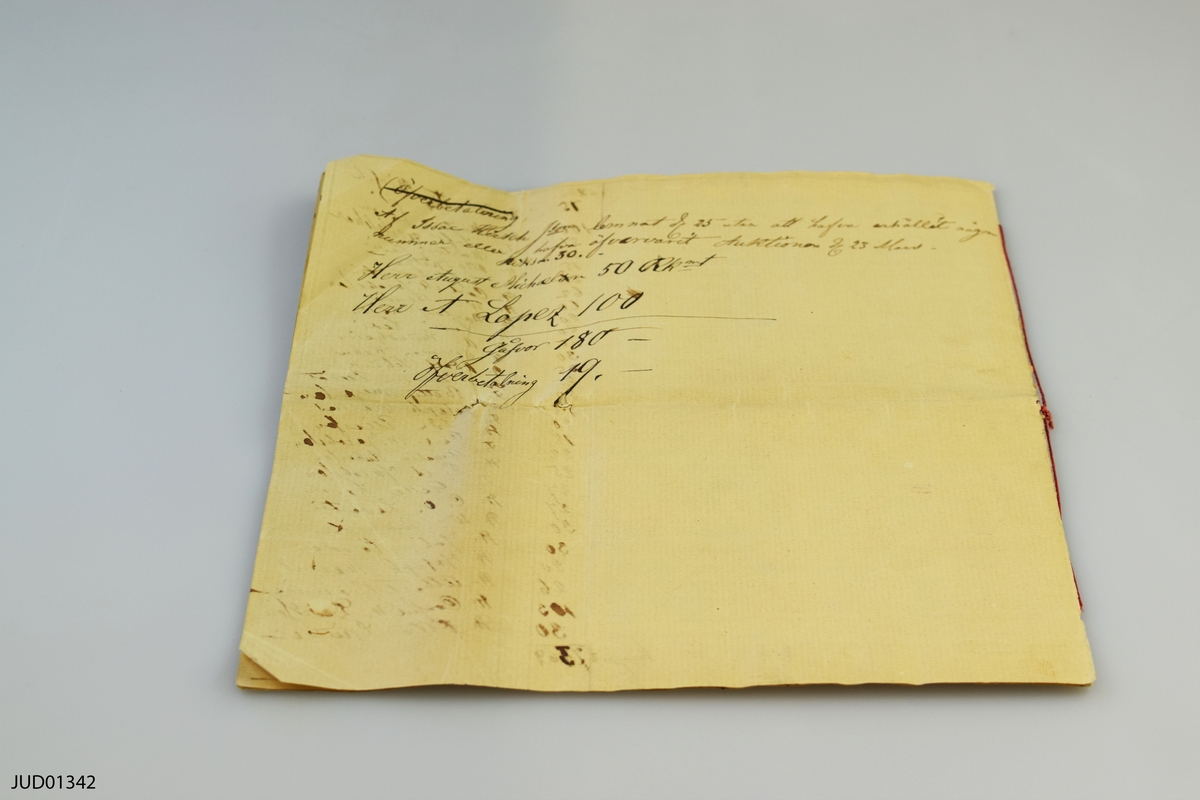 Öfverbetalning
Af Isaac Hirsch som lemnat 25 utan att hafva erhållit någon
nummer eller hafva öfvervarit Auktionen 23 Mars.
Riksd 30.-
Herr August Michelson 50 Rks
Herr A Lopez 100
Gåfvor 180 —
Öfverbetalning 49. —
JUD01342